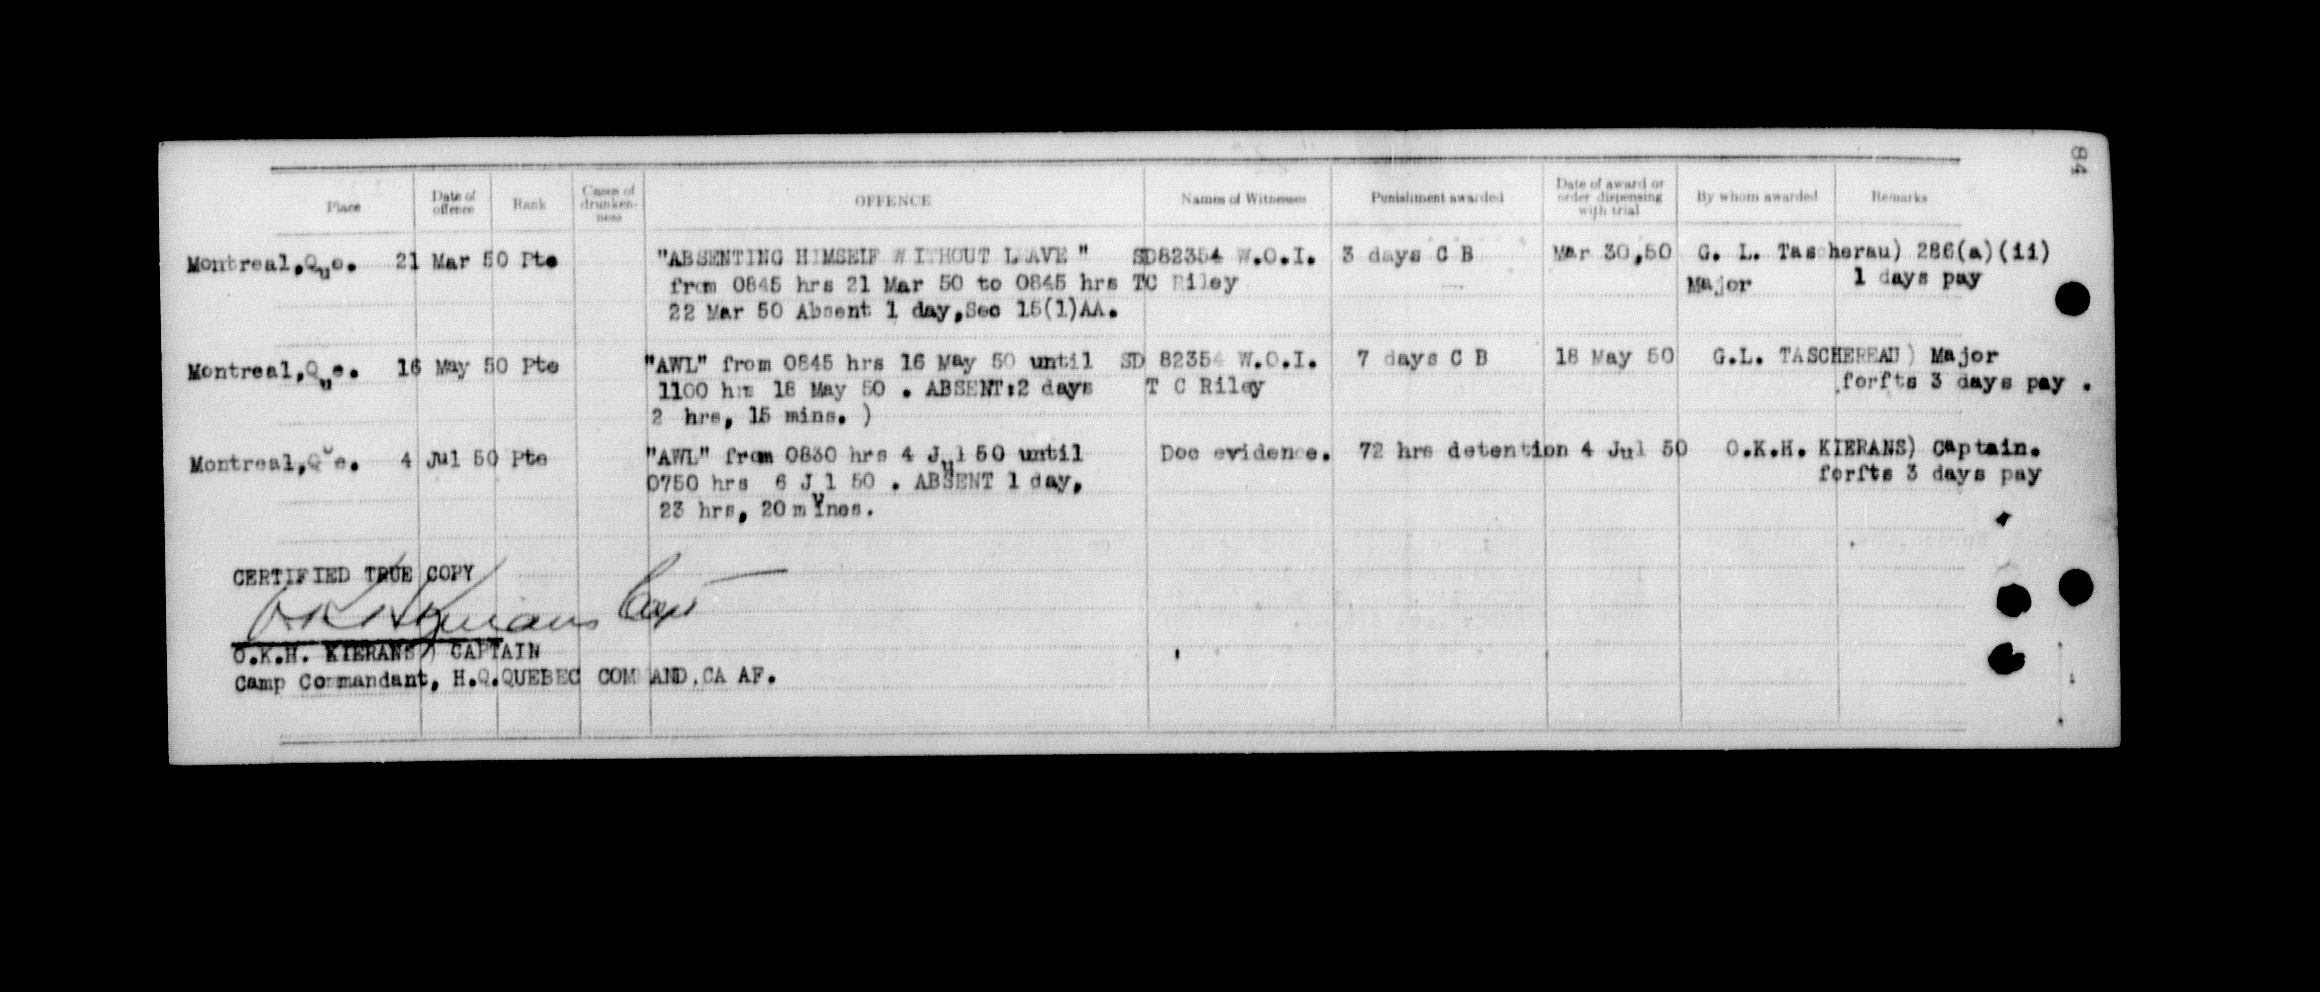 84
Place Date of offence Rank Cases of drunken-ness OFFENCE Names of Witnesses Punishment awarded Date of award or order dispensing with trial By whom awarded Remarks
Montreal,Que. 21 Mar 50 Pte "ABSENTING HIMSELF WITHOUT LEAVE" SD82354 W.O.I. 3 days C B Mar 30,50 G. L. Tascherau) 286(a)(ii)
from 0845 hrs 21 Mar 50 to 0845 hrs TC Riley Major 1 days pay
22 Mar 50 Absent 1 day,Sec 15(1)AA.
Montreal,Que. 16 May 50 Pte "AWL" from 0845 hrs 16 May 50 until SD 82354 W.O.I. 7 days C B 18 May 50 G.L. TASCHEREAU) Major
1100 hrs 18 May 50 . ABSENT:2 days T C Riley forfts 3 days pay .
2 hrs, 15 mins. )
Montreal,Que. 4 Jul 50 Pte "AWL" from 0830 hrs 4 Jul 50 until Doc evidence. 72 hrs detention 4 Jul 50 O.K.H. KIERANS) Captain.
0750 hrs 6 Jul 50 . ABSENT 1 day, forfts 3 days pay
23 hrs, 20 mines.
CERTIFIED TRUE COPY
O.K.H. Kierans Capt
O.K.H. KIERANS) CAPTAIN
Camp Commandant, H.Q.QUEBEC COMMAND,CA AF.